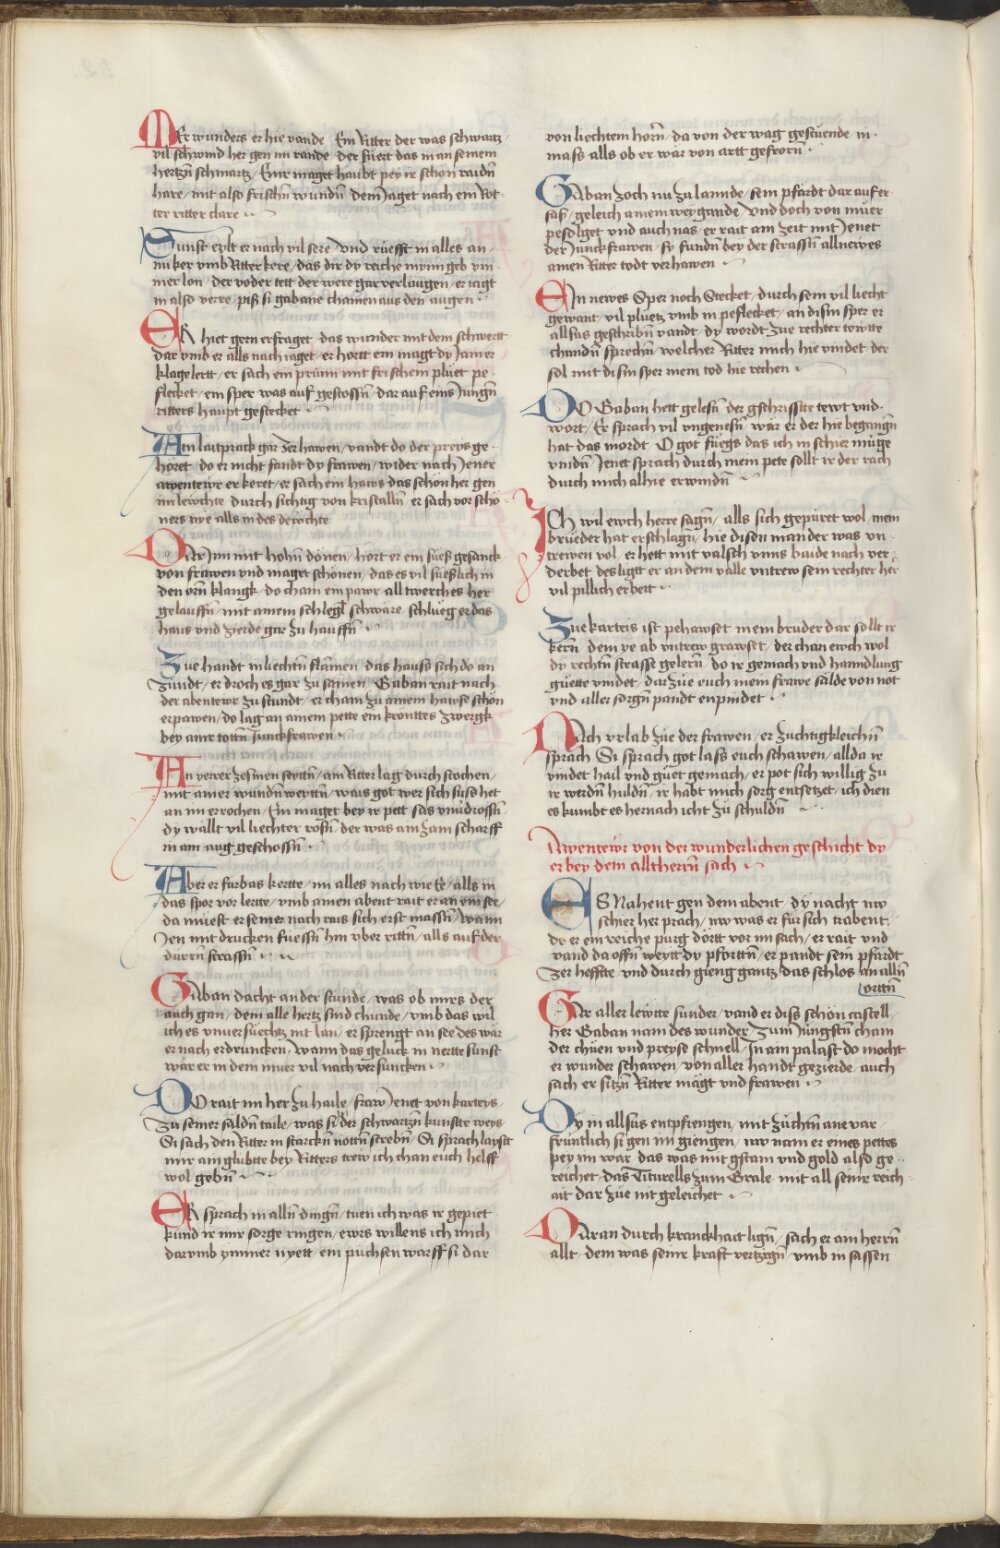 Mer wunders er hie vande / Ein Ritter der was schwartz /
vil schwind her gen im rande / der füert das man seinem
hertzñ schmartz / Einr maget haubt pey ir schön raidñ
hare / mit also frischñ wundñ / dem Jaget nach ein Rot-
ter ritter clare
Sunst eylt er nach vil sere / vnd rüefft in alles an /
nu ker vmb Ritter kere / das dir dy reiche mynn geb ym-
mer lon / der voder tett der were gar verlaugen / er iagt
in also verre / piß si gabane chamen aus den augen
ER hiet gern erfraget / das wunder mit dem schwertt
dar vmb er alls nach iaget / er hortt ein magt dy Jamer
klage lertt / er sach ein prünn mit frischem plüet pe
flecket / ein sper was auf gestossñ / dar auf eins Jungñ
ritters haupt gestecket
Am lautprack gar zerhawen / vandt do der preys ge-
höret / do er nicht fandt dy frawen / wider nach Jener
awentewr er keret / er sach ein haws das schön her gen
im lewchte / durch sichtig von kristallñ / er sach vor schö-
ners nye alls in des dewchte
Dar Inn mit hohñ dönen / hort er ein süeß gesanck
von frawen vnd maget schönen / das es vil süeßlich in
den orñ klangk / do cham ein pawr all twerches her
gelauffñ / mit ainem schlegl schwäre / schlüeg er das
haus vnd zierde gar zu hauffñ
Zue handt in liechtñ flamen / das hauß sich do an
zündt / er droch es gar zu samen / Gaban rait nach
der abentewr zu stundt / er cham zu ainem hawse schön
erpawen / do lag an ainem pette ein krontes zwergk
bey ainr totñ Junckfrawen
An verrer zesmen seyttñ / ain Ritter lag durch stochen /
mit ainer wundñ weyttñ / wais got wer sich suß het
an im errochen / Ein maget bey ir pett sas vnuerdrossñ
dy wallt vil liechter rosñ / der was ain zain scharff
in ain aug geschossñ
Aber er furbas kertte / im alles nach wie Ee / alls in
das spor vor lertte / vmb ainen abent rait er an ein see /
da muest er seiner nach rais sich erst massñ / wann
Jen mit drucken füessñ hin vber rittñ / alls auf der
dürrn strassñ
Gaban dacht an der stunde / was ob mirs der
auch gan / dem alle hertz sind chunde / vmb das wil
ich es vnuersüechtz nit lan / er sprengt an see des wär
er nach erdruncken / wann das gelück in nertte sunst
wär er in dem muer vil nach versuncken
DO rait im her zu haile / fraw Jenet von karteys
zu seiner saldñ taile / was si der schwartzn kunste weys
Si sach den Ritter in starckñ nöttñ strebñ / Si sprach laystt
mir ain glübtte bey Ritters trew ich chan euch helff
wol gebñ
ER sprach in allñ dingñ / tuen ich was ir gepiet
künd ir mir sorge ringen / ewrs willens ich mich
dar vmb ymmer nyett / ein püchsen warff si dar
von liechtem horñ / da von der wag gestüende in
mass alls ob er wär von artt gefrorñ
Gaban zoch nu zu lannde / sein pfärdt dar auf er
saß / geleich ainem weygande / vnd doch von müer
pesolget vnd auch nas / er rait ain zeit mit Jenet
der Junckfrawen / sy fundñ bey der strassñ allnewes
ainen Ritter todt verhawen
EIn newes Sper noch Stecket / durch sein vil liecht
gewant / vil pluetz vmb in peflecket / an disñ sper er
allsus geschribñ vandt / dy wordt zue rechter tewtte
chundñ sprechñ / welcher Ritter mich hie vindet der
sol mit disñ sper mein tod hie rechen
DO Gaban hett gelesñ / der gschrifftte tewt vnd
wort / Er sprach vil vngenesñ / wär er der hie begangñ
hat das mordt / O got füegs das ich in schier müge
vindñ / Jenet sprach durch mein pete sollt ir der rach
durch mich alhie erwindñ
ICh wil ewch herre sagñ / alls sich gepüret wol / mein
brueder hat er schlagñ / hie disen man der was vn-
trewen vol / er hett mit valsch vnns baide nach ver-
derbet / des ligtt er an dem valle vntrew sein rechter her
vil pillich erbett
Zue karteis ist pehawset / mein bruder dar sollt ir
kern / dem ye ab vntrew grawset / der chan ewch wol
dy rechtñ strasse gelern / do ir gemach vnd hanndlung
güette vindet / dar zue euch mein frawe salde von not
vnd aller sorgñ pandt enpindet
NAch vrlab züe der frawen / er züchtigkleichñ
sprach / Si sprach got laß euch schawen / allda ir
vindet hail vnd güet gemach / er pot sich willig zu
ir werdñ huldñ / ir habt mich sorg entsetzet / ich dien
es kumbt es hernach icht zü schuldñ
Awentewr von der wunderlichen geschicht dy
er bey dem allthern sach
ES Nahent gen dem abent / dy nacht nw
schier her prach / nw was er für sich trabent /
do er ein reiche purg dortt vor im sach / er rait vnd
vand da offñ weytt dy pforttñ / er pandt sein pfärdt
zer hefftte / vnd durch gieng gantz das schlos an allñ
orttñ
GAr aller lewtte sunder / vand er diß schön castell /
her Gaban nam des wunder / zum Jüngstñ cham
der chüen vnd preyse schnell / In ain palast do mocht
er wunder schawen / von aller handt gezierde / auch
sach er sitzñ Ritter mägt vnd frawen
DY in allsus entpfiengen / mit züchtñ ane var /
fruntlich si gen im giengen / nw nam er eines pettes
pey im war / das was mit gstain vnd gold also ge-
reichet / das Titurells zum Grale / mit all seinr reich-
ait dar züe nit geleichet
DAran durch kranckhait ligñ / sach er ain herrñ
allt / dem was seinr kraft verzigñ / vmb in sassen